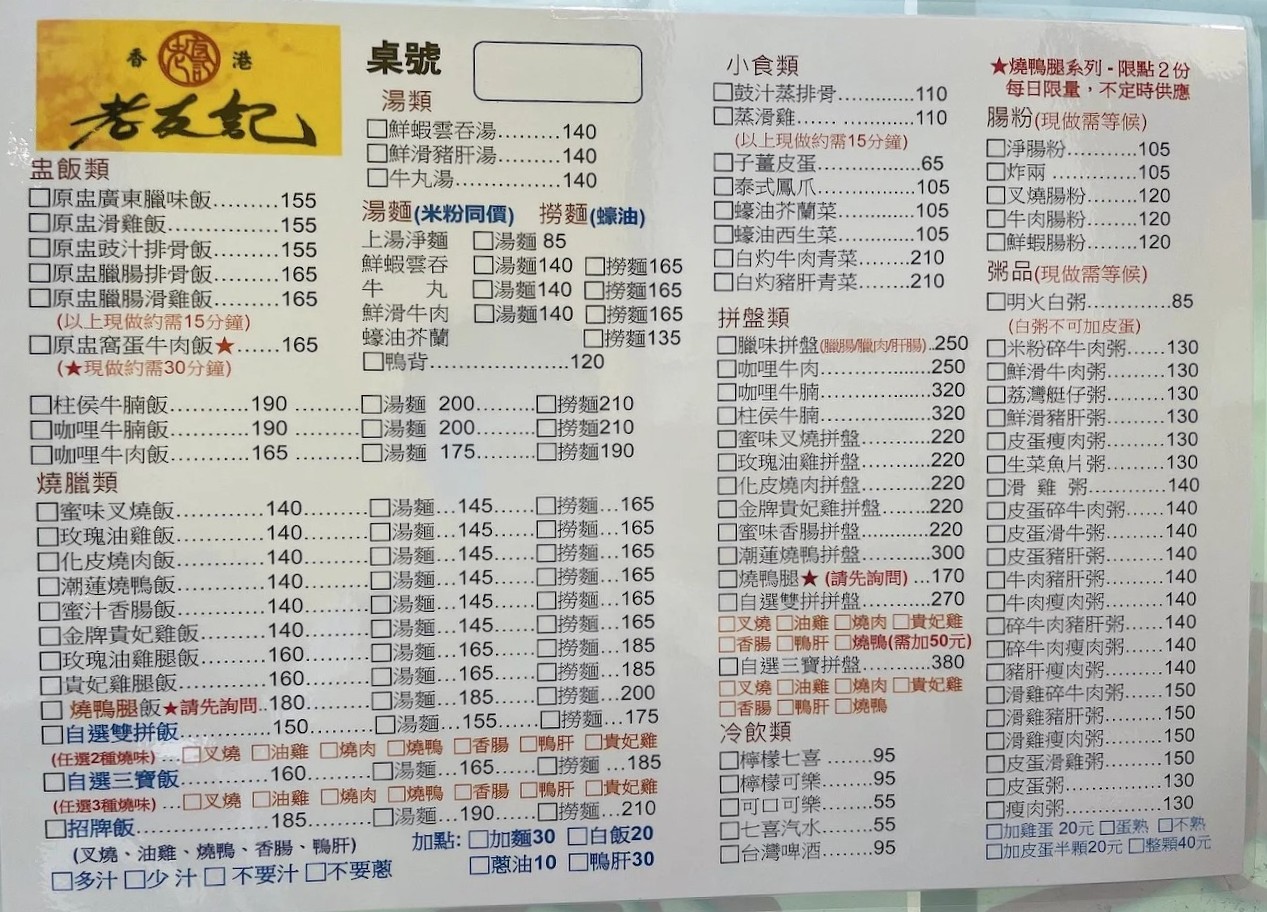 香 老友記 港
老友記
盅飯類
□原盅廣東臘味飯.........155
□原盅滑雞飯..............155
□原盅豉汁排骨飯.........155
□原盅臘腸排骨飯.........165
□原盅臘腸滑雞飯.........165
(以上現做約需15分鐘)
□原盅窩蛋牛肉飯★......165
(★現做約需30分鐘)
桌號
湯類
□鮮蝦雲吞湯.........140
□鮮滑豬肝湯.........140
□牛丸湯...............140
湯麵(米粉同價) 撈麵(蠔油)
上湯淨麵 □湯麵 85
鮮蝦雲吞 □湯麵140 □撈麵165
牛 丸 □湯麵140 □撈麵165
鮮滑牛肉 □湯麵140 □撈麵165
蠔油芥蘭 □撈麵135
□鴨背..................120
□柱侯牛腩飯...........190 .........□湯麵 200.........□撈麵210
□咖哩牛腩飯...........190 .........□湯麵 200.........□撈麵210
□咖哩牛肉飯...........165 .........□湯麵 175.........□撈麵190
燒臘類
□蜜味叉燒飯............140.........□湯麵...145......□撈麵...165
□玫瑰油雞飯............140.........□湯麵...145......□撈麵...165
□化皮燒肉飯............140.........□湯麵...145......□撈麵...165
□潮蓮燒鴨飯............140.........□湯麵...145......□撈麵...165
□蜜汁香腸飯............140.........□湯麵...145......□撈麵...165
□金牌貴妃雞飯.........140.........□湯麵...145......□撈麵...165
□玫瑰油雞腿飯.........160.........□湯麵...165......□撈麵...185
□貴妃雞腿飯............160.........□湯麵...165......□撈麵...185
□ 燒鴨腿飯★請先詢問..180.........□湯麵...185......□撈麵...200
□自選雙拼飯............150.........□湯麵...155......□撈麵...175
(任選2種燒味) ...□叉燒 □油雞 □燒肉 □燒鴨 □香腸 □鴨肝 □貴妃雞
□自選三寶飯............160.........□湯麵...165......□撈麵 ...185
(任選3種燒味) ...□叉燒 □油雞 □燒肉 □燒鴨 □香腸 □鴨肝 □貴妃雞
□招牌飯..................185.........□湯麵...190......□撈麵...210
(叉燒、油雞、燒鴨、香腸、鴨肝)
□多汁 □少 汁 □ 不要汁 □不要蔥
加點: □加麵30 □白飯20
□蔥油10 □鴨肝30
小食類
□鼓汁蒸排骨............110
□蒸滑雞...... ..........110
(以上現做約需15分鐘)
□子薑皮蛋...............65
□泰式鳳爪...............105
□蠔油芥蘭菜............105
□蠔油西生菜............105
□白灼牛肉青菜.........210
□白灼豬肝青菜.........210
拼盤類
□臘味拼盤(臘腸/臘肉/肝腸)..250
□咖哩牛肉..................250
□咖哩牛腩..................320
□柱侯牛腩..................320
□蜜味叉燒拼盤............220
□玫瑰油雞拼盤............220
□化皮燒肉拼盤............220
□金牌貴妃雞拼盤.........220
□蜜味香腸拼盤............220
□潮蓮燒鴨拼盤............300
□燒鴨腿★ (請先詢問) ...170
□自選雙拼拼盤............270
□叉燒 □油雞 □燒肉 □貴妃雞
□香腸 □鴨肝 □燒鴨(需加50元)
□自選三寶拼盤............380
□叉燒 □油雞 □燒肉 □貴妃雞
□香腸 □鴨肝 □燒鴨
冷飲類
□檸檬七喜 .......95
□檸檬可樂.........95
□可口可樂.........55
□七喜汽水.........55
□台灣啤酒.........95
★燒鴨腿系列 - 限點2份
每日限量，不定時供應
腸粉(現做需等候)
□淨腸粉............105
□炸兩 ..............105
□叉燒腸粉.........120
□牛肉腸粉.........120
□鮮蝦腸粉.........120
粥品(現做需等候)
□明火白粥............85
(白粥不可加皮蛋)
□米粉碎牛肉粥......130
□鮮滑牛肉粥.........130
□荔灣艇仔粥.........130
□鮮滑豬肝粥.........130
□皮蛋瘦肉粥.........130
□生菜魚片粥.........130
□滑 雞 粥............140
□皮蛋碎牛肉粥......140
□皮蛋滑牛粥.........140
□皮蛋豬肝粥.........140
□牛肉豬肝粥.........140
□牛肉瘦肉粥.........140
□碎牛肉豬肝粥......140
□碎牛肉瘦肉粥......140
□豬肝瘦肉粥.........140
□滑雞碎牛肉粥......150
□滑雞豬肝粥.........150
□滑雞瘦肉粥.........150
□皮蛋滑雞粥.........150
□皮蛋粥...............130
□瘦肉粥...............130
□加雞蛋 20元 □蛋熟 □不熟
□加皮蛋半顆20元 □整顆40元